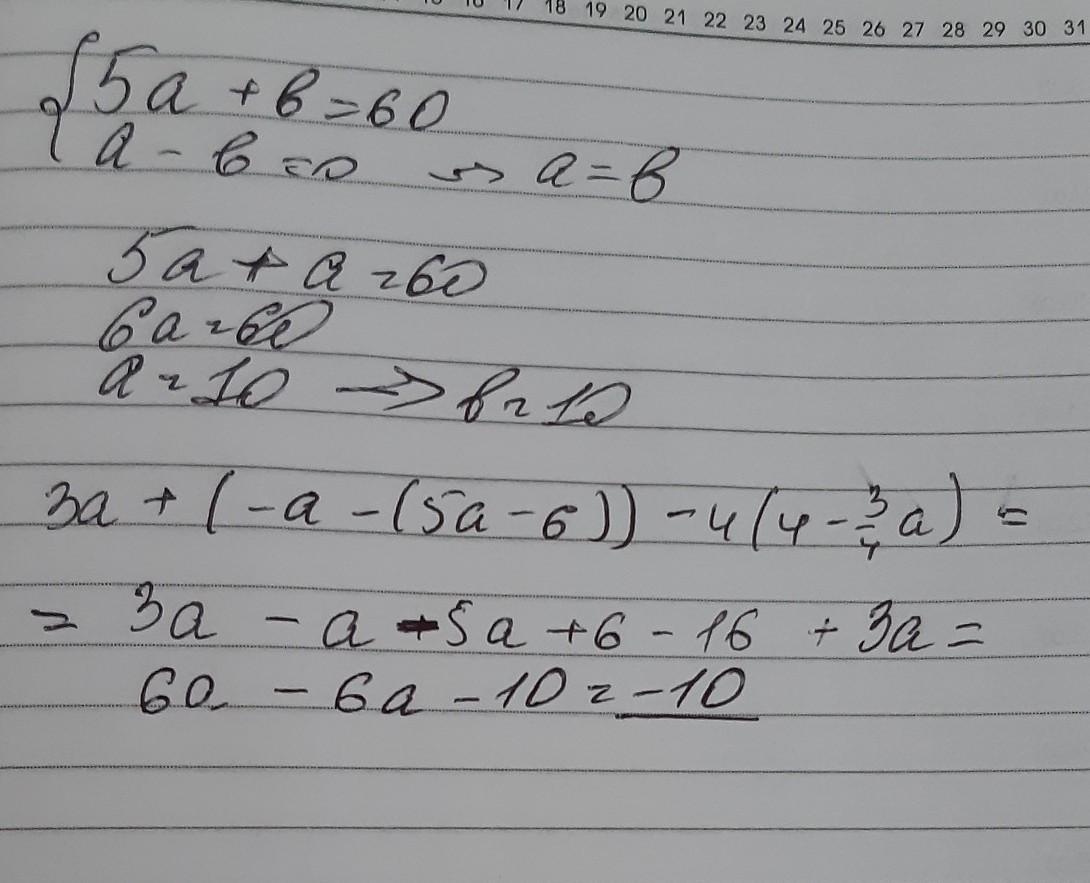 15 16 17 18 19 20 21 22 23 24 25 26 27 28 29 30 31
{5a + b = 60
a - b = 0 => a = b
5a + a = 60
6a = 60
a = 10 → b = 10
3a + (-a - (5a - 6)) - 4(4 - 3/4 a) =
= 3a - a - 5a + 6 - 16 + 3a =
6a - 6a - 10 = -10